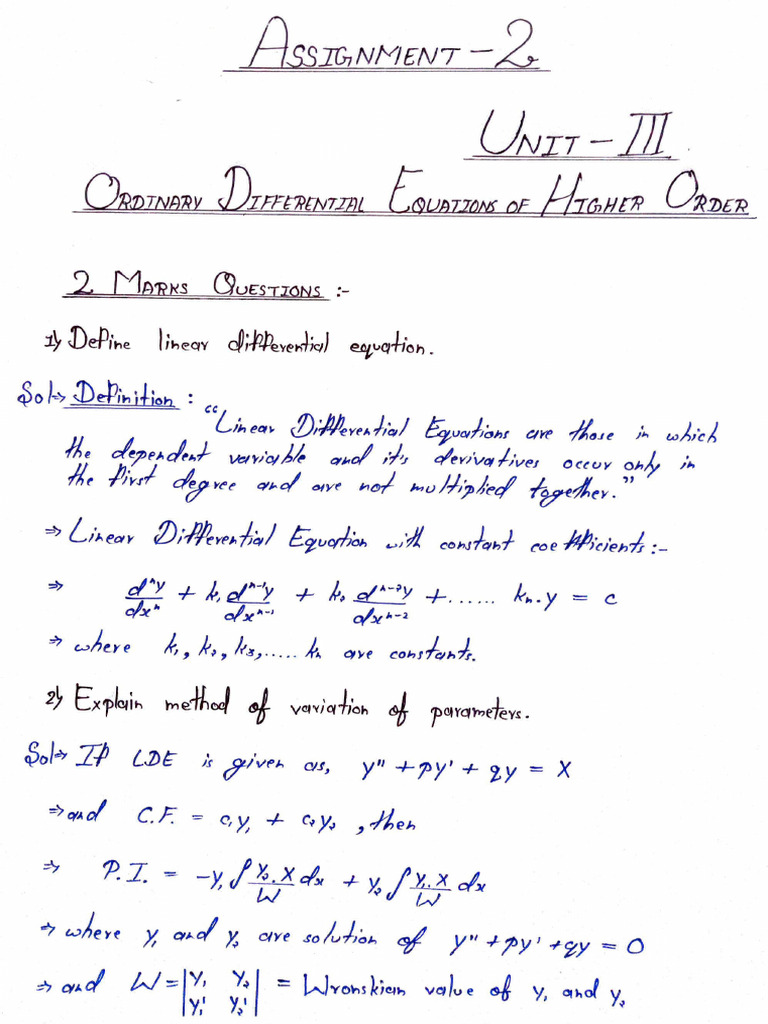 ASSIGNMENT-2
UNIT-III
ORDINARY DIFFERENTIAL EQUATIONS OF HIGHER ORDER
2 MARKS QUESTIONS :-
1) Define linear differential equation.
Sol⇒ Definition :
"Linear Differential Equations are those in which
the dependent variable and it's derivatives occur only in
the first degree and are not multiplied together."
⇒ Linear Differential Equation with constant coefficients:-
⇒ dⁿy/dxⁿ + k₁ dⁿ⁻¹y/dxⁿ⁻¹ + k₂ dⁿ⁻²y/dxⁿ⁻² + ...... kₙ.y = c
⇒ where k₁, k₂, k₃, ..... kₙ are constants.
2) Explain method of variation of parameters.
Sol⇒ If LDE is given as, y" + py' + qy = X
⇒ and C.F. = c₁y₁ + c₂y₂, then
⇒ P.I. = -y₁∫(y₂.X/W)dx + y₂∫(y₁.X/W)dx
⇒ where y₁ and y₂ are solution of y" + py' + qy = 0
⇒ and W = |y₁ y₂| = Wronskian value of y₁ and y₂
|y₁' y₂'|